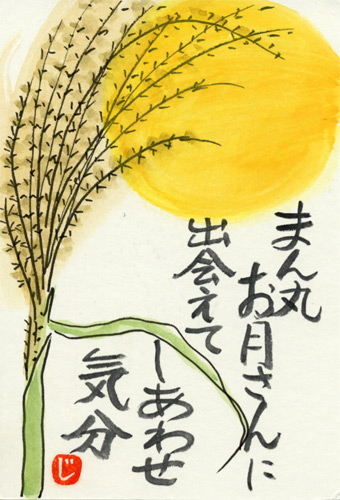 まん丸
お月さんに
出会えて
しあわせ
気分
じ